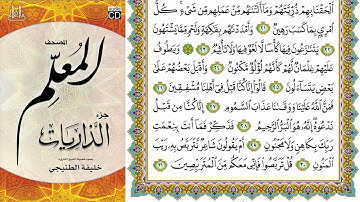 CD
المصحف
المُعلّم
جزء
الذاريات
خليفة الطنيجي
أَلْحَقْنَا بِهِمْ ذُرِّيَّتَهُمْ وَمَا أَلَتْنَاهُم مِّنْ عَمَلِهِم مِّن شَيْءٍ كُلُّ
امْرِئٍ بِمَا كَسَبَ رَهِينٌ ٢١ وَأَمْدَدْنَاهُم بِفَاكِهَةٍ وَلَحْمٍ مِّمَّا يَشْتَهُونَ
٢٢ يَتَنَازَعُونَ فِيهَا كَأْسًا لَّا لَغْوٌ فِيهَا وَلَا تَأْثِيمٌ ٢٣ وَيَطُوفُ
عَلَيْهِمْ غِلْمَانٌ لَّهُمْ كَأَنَّهُمْ لُؤْلُؤٌ مَّكْنُونٌ ٢٤ وَأَقْبَلَ بَعْضُهُمْ عَلَىٰ
بَعْضٍ يَتَسَاءَلُونَ ٢٥ قَالُوا إِنَّا كُنَّا قَبْلُ فِي أَهْلِنَا مُشْفِقِينَ ٢٦
فَمَنَّ اللَّهُ عَلَيْنَا وَوَقَانَا عَذَابَ السَّمُومِ ٢٧ إِنَّا كُنَّا مِن قَبْلُ
نَدْعُوهُ إِنَّهُ هُوَ الْبَرُّ الرَّحِيمُ ٢٨ فَذَكِّرْ فَمَا أَنتَ بِنِعْمَتِ
رَبِّكَ بِكَاهِنٍ وَلَا مَجْنُونٍ ٢٩ أَمْ يَقُولُونَ شَاعِرٌ نَّتَرَبَّصُ بِهِ رَيْبَ
الْمَنُونِ ٣٠ قُلْ تَرَبَّصُوا فَإِنِّي مَعَكُم مِّنَ الْمُتَرَبِّصِينَ